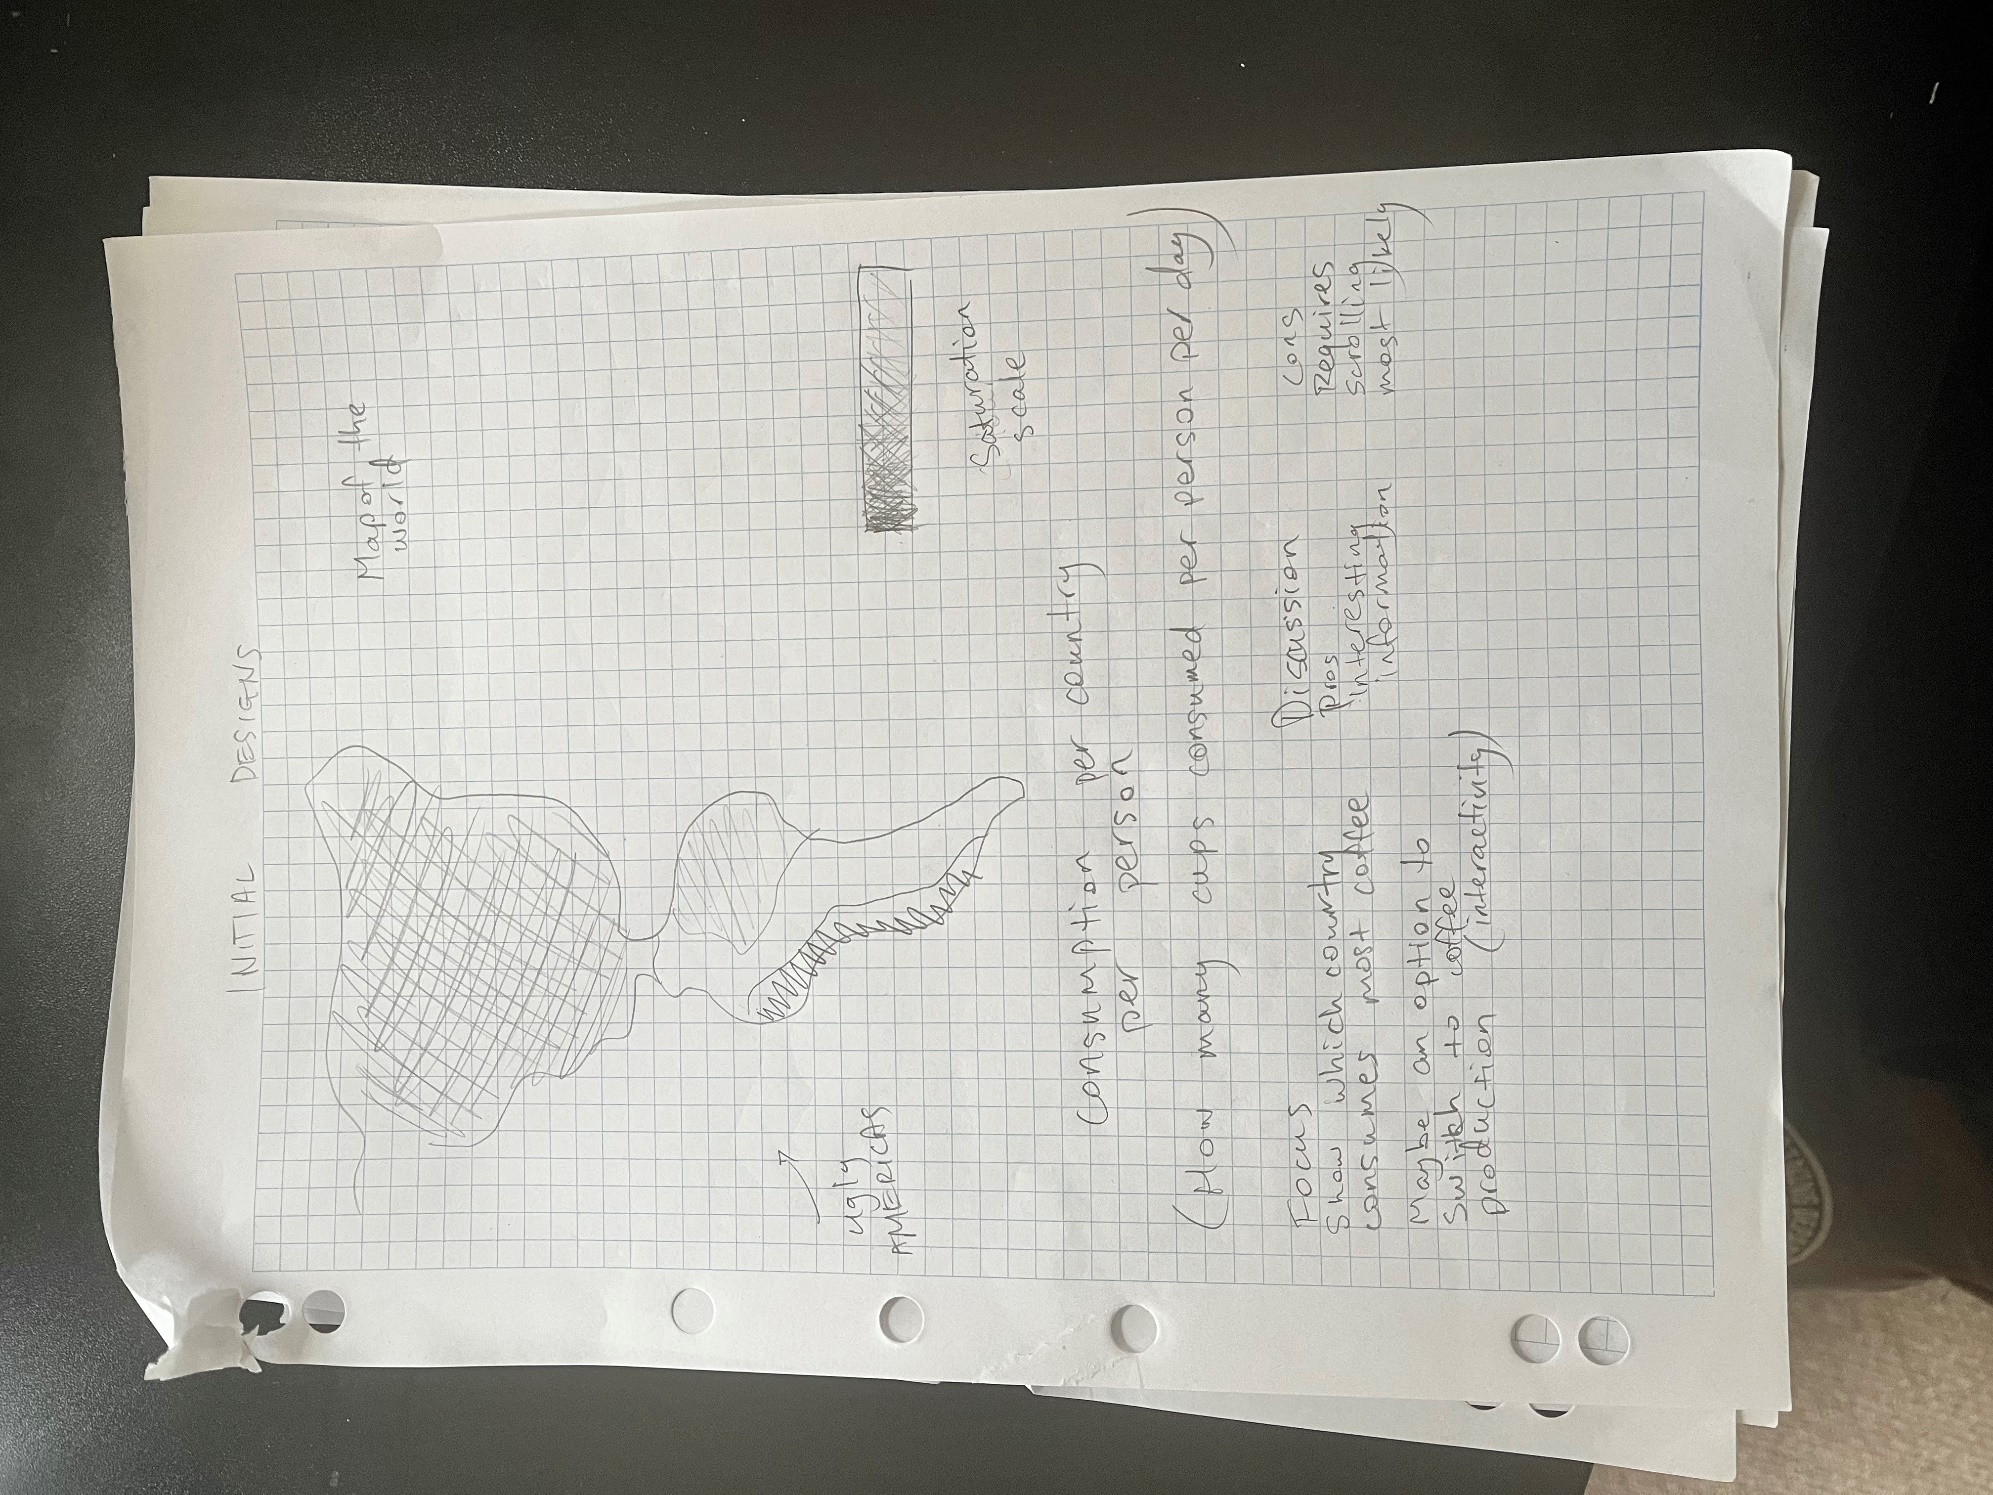 INITIAL DESIGNS
Map of the
world
ugly
AMERICAS
Saturation
scale
Consumption per country
per person
(How many cups consumed per person per day)
Focus
Show which country
consumes most coffee
Maybe an option to
switch to coffee
production (interactivity)
Discussion
Pros
interesting
information
Cons
Requires
scrolling
most likely)